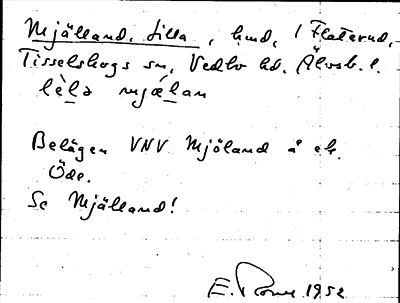 Mjälland, Lilla, hmd, i Flaterud,
Tisselskogs sn, Vedbo hd. Älvsb. l.
lɛ̀lə mjǽlan
Belägen VNV Mjöland å ek.
Öde.
Se Mjälland!
E. 1952